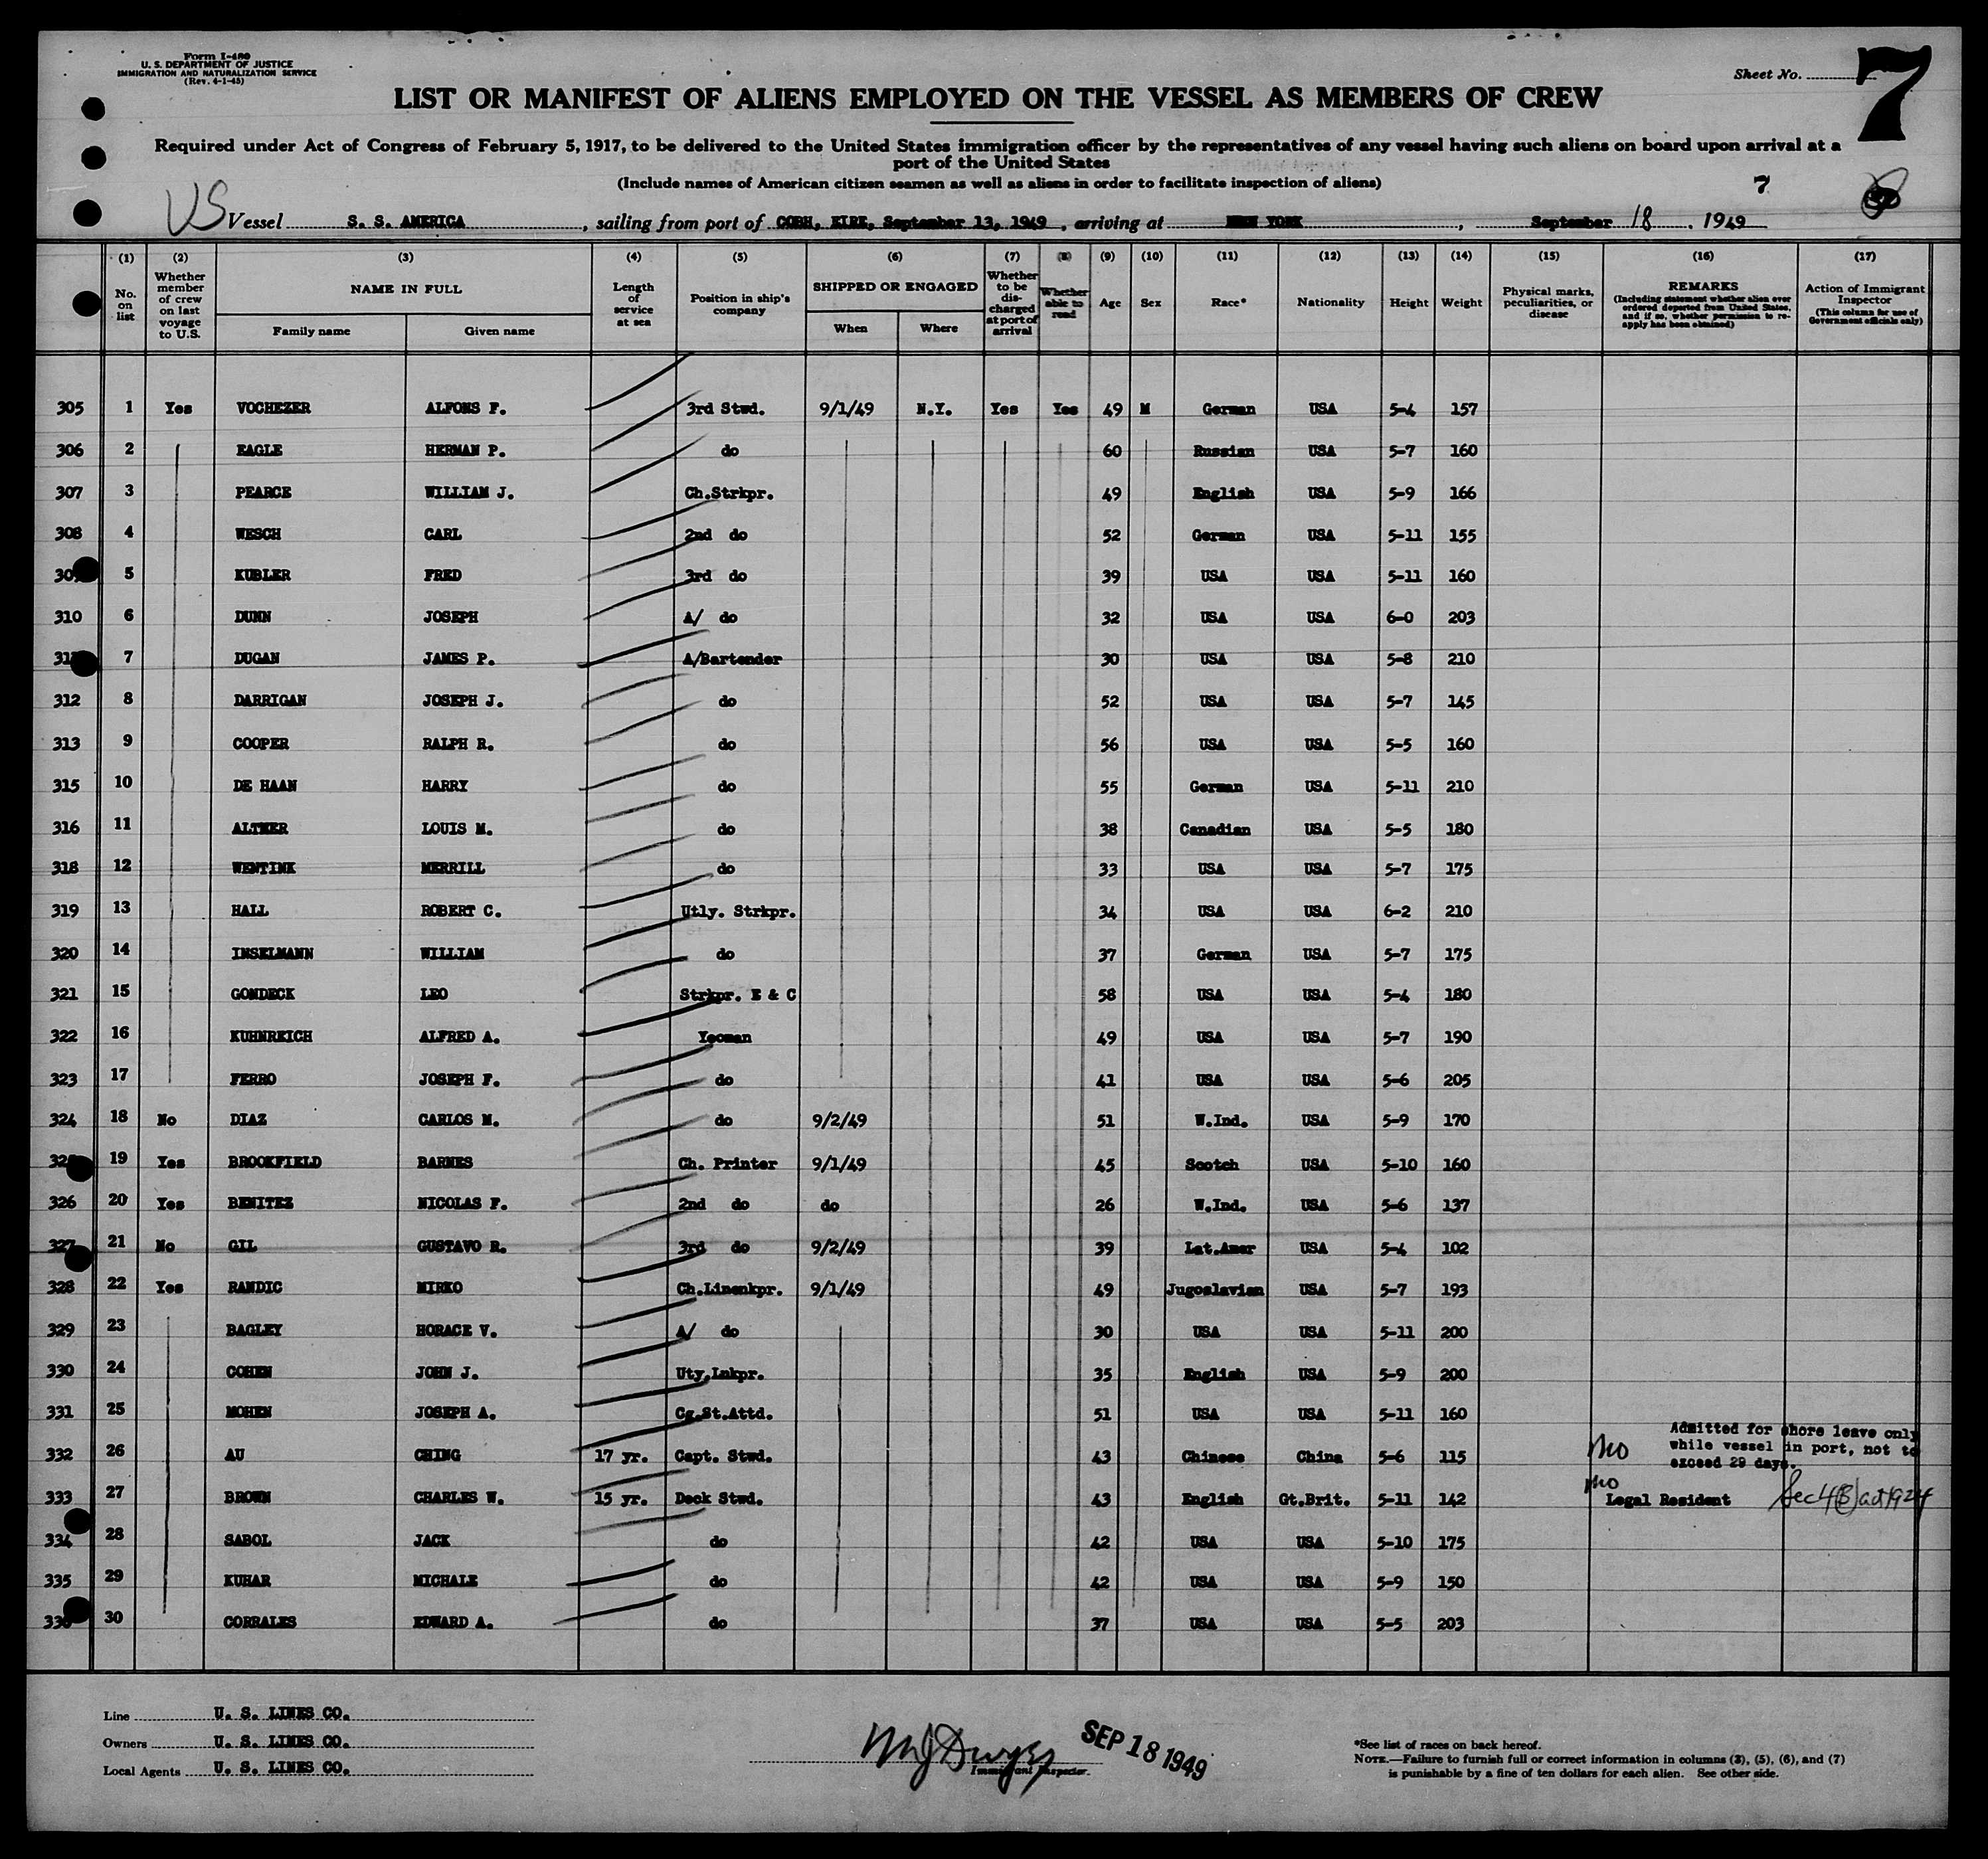 Form I-480
U. S. DEPARTMENT OF JUSTICE
IMMIGRATION AND NATURALIZATION SERVICE
(Rev. 4-1-45)
Sheet No. 7
LIST OR MANIFEST OF ALIENS EMPLOYED ON THE VESSEL AS MEMBERS OF CREW
Required under Act of Congress of February 5, 1917, to be delivered to the United States immigration officer by the representatives of any vessel having such aliens on board upon arrival at a
port of the United States
(Include names of American citizen seamen as well as aliens in order to facilitate inspection of aliens)
7
US Vessel S. S. AMERICA, sailing from port of COBH, EIRE, September 13, 1949, arriving at NEW YORK, September 18, 1949
(1) (2) (3) (4) (5) (6) (7) (8) (9) (10) (11) (12) (13) (14) (15) (16) (17)
No. on list
Whether member of crew on last voyage to U.S.
NAME IN FULL
Family name Given name
Length of service at sea
Position in ship's company
SHIPPED OR ENGAGED
When Where
Whether to be discharged at port of arrival
Whether able to read
Age
Sex
Race*
Nationality
Height
Weight
Physical marks, peculiarities, or disease
REMARKS
(Including statement whether alien ever ordered deported from United States, and if so, whether permission to reapply has been obtained)
Action of Immigrant Inspector
(This column for use of Government officials only)
305 1 Yes VOCHEZER ALFONS F. 3rd Stwd. 9/1/49 N.Y. Yes Yes 49 M German USA 5-4 157
306 2 EAGLE HERMAN P. do 60 Russian USA 5-7 160
307 3 PEARCE WILLIAM J. Ch.Strkpr. 49 English USA 5-9 166
308 4 WESCH CARL 2nd do 52 German USA 5-11 155
5 KUBLER FRED 3rd do 39 USA USA 5-11 160
310 6 DUNN JOSEPH A/ do 32 USA USA 6-0 203
7 DUGAN JAMES P. A/Bartender 30 USA USA 5-8 210
312 8 DARRIGAN JOSEPH J. do 52 USA USA 5-7 145
313 9 COOPER RALPH R. do 56 USA USA 5-5 160
315 10 DE HAAN HARRY do 55 German USA 5-11 210
316 11 ALTHER LOUIS M. do 38 Canadian USA 5-5 180
318 12 WENTINK MERRILL do 33 USA USA 5-7 175
319 13 HALL ROBERT C. Utly. Strkpr. 34 USA USA 6-2 210
320 14 INSELMANN WILLIAM do 37 German USA 5-7 175
321 15 GONDECK LEO Strkpr. E & C 58 USA USA 5-4 180
322 16 KUHNREICH ALFRED A. Yeoman 49 USA USA 5-7 190
323 17 FERRO JOSEPH F. do 41 USA USA 5-6 205
324 18 No DIAZ CARLOS M. do 9/2/49 51 W.Ind. USA 5-9 170
19 Yes BROOKFIELD BARNES Ch. Printer 9/1/49 45 Scotch USA 5-10 160
326 20 Yes BENITEZ NICOLAS F. 2nd do do 26 W.Ind. USA 5-6 137
327 21 No GIL GUSTAVO R. 3rd do 9/2/49 39 Lat.Amer USA 5-4 102
328 22 Yes RANDIC MIRKO Ch.Linenkpr. 9/1/49 49 Jugoslavian USA 5-7 193
329 23 BAGLEY HORACE V. A/ do 30 USA USA 5-11 200
330 24 COHEN JOHN J. Uty.Lnkpr. 35 English USA 5-9 200
331 25 MOHEN JOSEPH A. Cg.St.Attd. 51 USA USA 5-11 160
332 26 AU CHING 17 yr. Capt. Stwd. 43 Chinese China 5-6 115 no Admitted for shore leave only
while vessel in port, not to
exceed 29 days.
333 27 BROWN CHARLES W. 15 yr. Deck Stwd. 43 English Gt.Brit. 5-11 142 no Legal Resident Sec 4(B) act 1924
334 28 SABOL JACK do 42 USA USA 5-10 175
335 29 KUHAR MICHALE do 42 USA USA 5-9 150
30 CORRALES EDWARD A. do 37 USA USA 5-5 203
Line U. S. LINES CO.
Owners U. S. LINES CO.
Local Agents U. S. LINES CO.
MJ Dwyer
Immigrant Inspector.
SEP 18 1949
*See list of races on back hereof.
NOTE.—Failure to furnish full or correct information in columns (3), (5), (6), and (7)
is punishable by a fine of ten dollars for each alien. See other side.